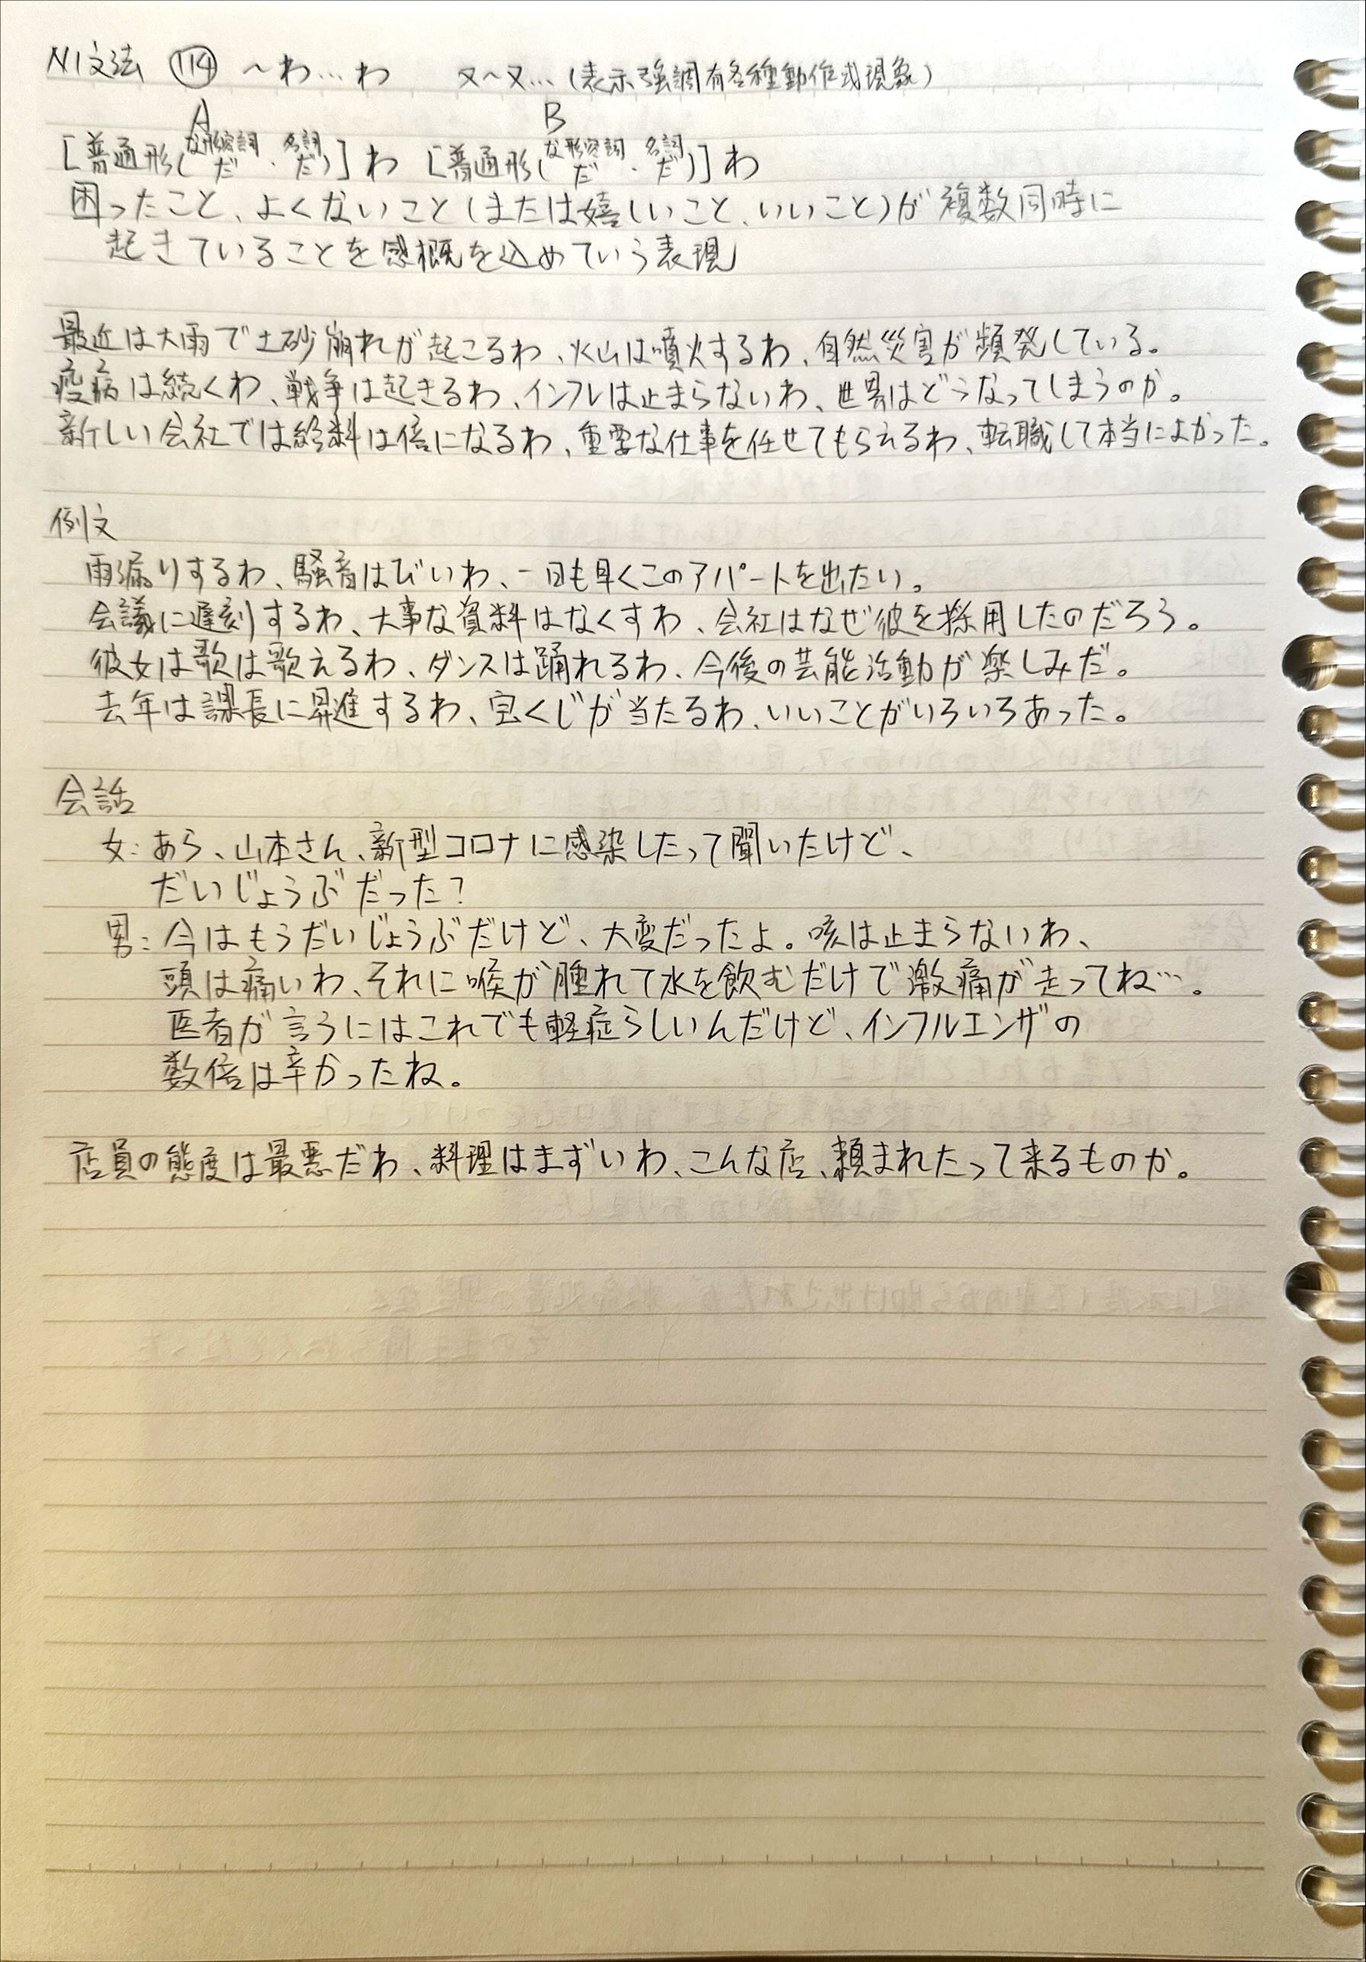 N1文法 (114) ～わ…わ 又～又…(表示強調有各種動作或現象)
A B
[普通形(な形容詞だ・名詞だ)]わ [普通形(な形容詞だ・名詞だ)]わ
困ったこと、よくないこと(または嬉しいこと、いいこと)が複数同時に
起きていることを感慨を込めていう表現
最近は大雨で土砂崩れが起こるわ、火山は噴火するわ、自然災害が頻発している。
疫病は続くわ、戦争は起きるわ、インフレは止まらないわ、世界はどうなってしまうのか。
新しい会社では給料は倍になるわ、重要な仕事を任せてもらえるわ、転職して本当によかった。
例文
雨漏りするわ、騒音はひどいわ、一日も早くこのアパートを出たい。
会議に遅刻するわ、大事な資料はなくすわ、会社はなぜ彼を採用したのだろう。
彼女は歌は歌えるわ、ダンスは踊れるわ、今後の芸能活動が楽しみだ。
去年は課長に昇進するわ、宝くじが当たるわ、いいことがいろいろあった。
会話
女:あら、山本さん、新型コロナに感染したって聞いたけど、
だいじょうぶだった?
男:今はもうだいじょうぶだけど、大変だったよ。咳は止まらないわ、
頭は痛いわ、それに喉が腫れて水を飲むだけで激痛が走ってね…。
医者が言うにはこれでも軽症らしいんだけど、インフルエンザの
数倍は辛かったね。
店員の態度は最悪だわ、料理はまずいわ、こんな店、頼まれたって来るものか。